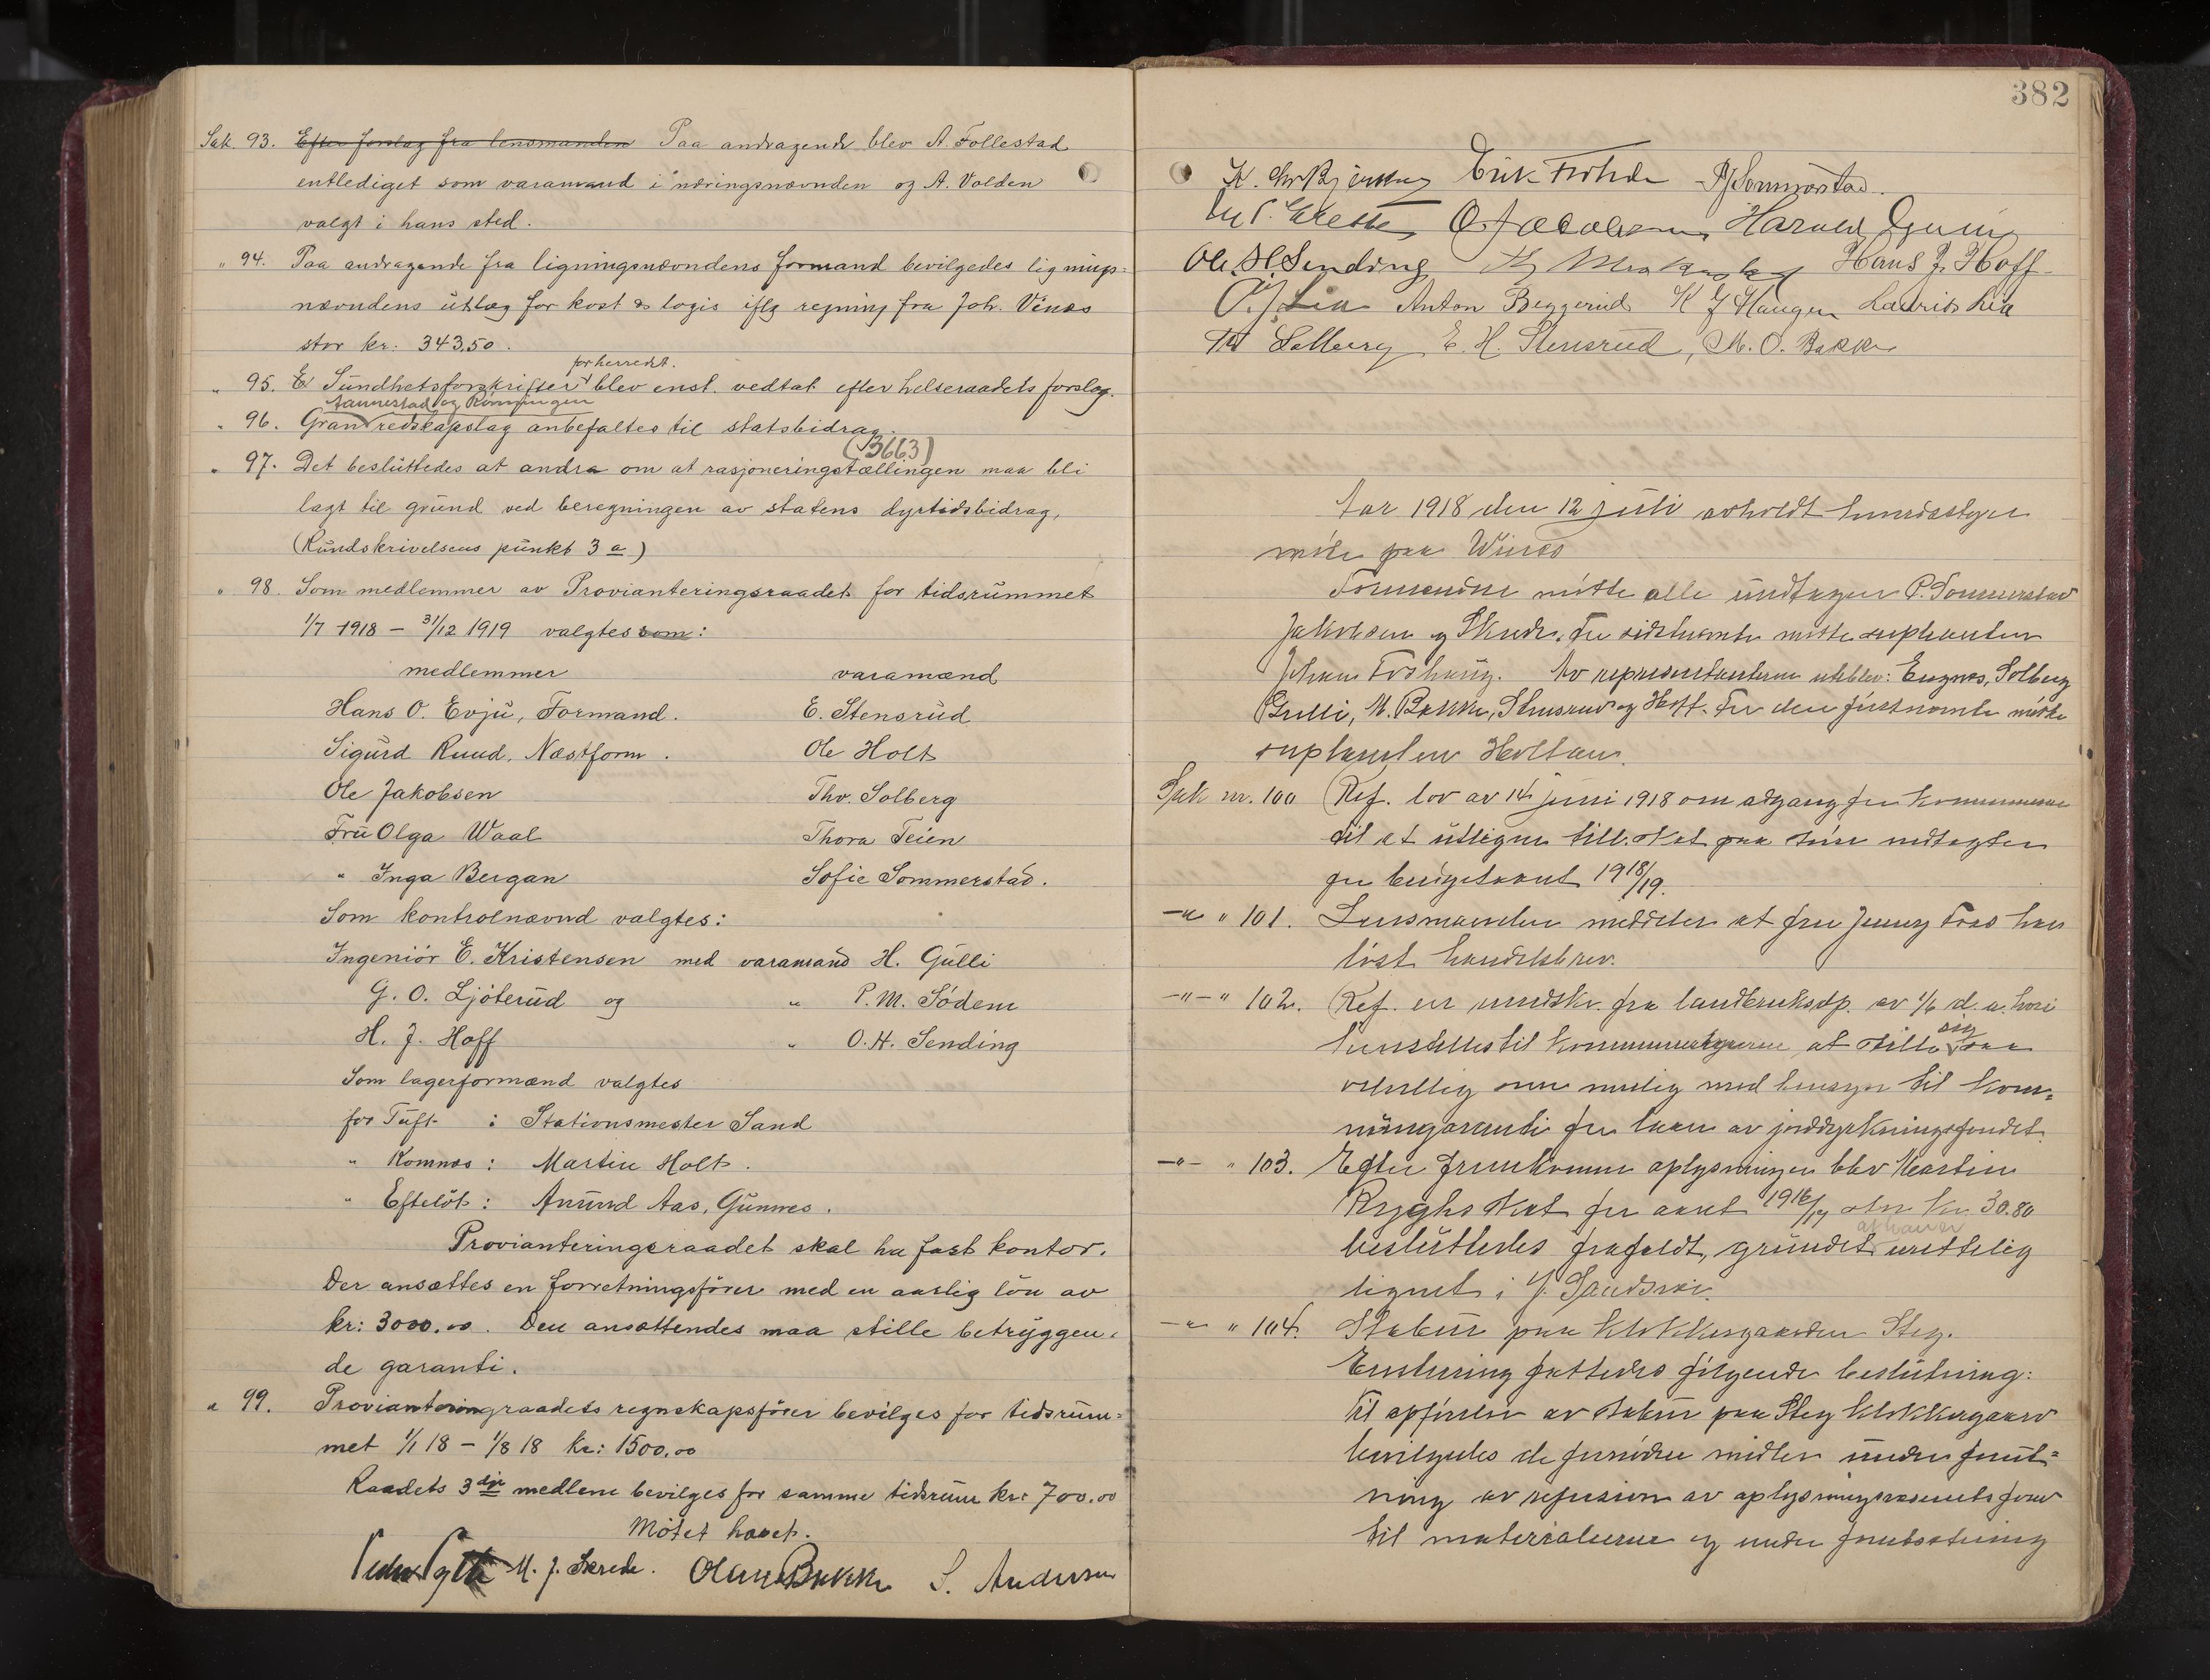 Sak 93. Efter forslag fra lensmanden Paa andragende blev A. Follestad
entlediget som varamand i næringsnævnden og A. Volden
valgt i hans sted.
" 94. Paa andragende fra ligningsnævndens formand bevilgedes lignings=
nævndens utlæg for kost & logis iflg regning fra Joh. Vinæs
stor kr: 343,50.
for herredet.
" 95. Sundhetsforskrifter blev enst. vedtat efter helseraadets forslag.
Sannestad og Rønningen
" 96. Gran redskapslag anbefaltes til statsbidrag.
(3663)
" 97. Det besluttedes at andra om at rasjoneringstællingen maa bli
lagt til grund ved beregningen av statens dyrtidsbidrag,
(Rundskrivelsens punkt 3 a)
" 98. Som medlemmer av Provianteringsraadet for tidsrummet
1/7 1918 – 31/12 1919 valgtes som:
medlemmer varamænd
Hans O. Evju, Formand. E. Stensrud
Sigurd Ruud, Næstform. Ole Holt
Ole Jakobsen Thv. Solberg
Fru Olga Waal Thora Teien
" Inga Bergan Sofie Sommerstad.
Som kontrolnævnd valgtes:
Ingeniør E. Kristensen med varamand H. Gulli
G. O. Ljøterud og " P. M. Sødem
H. J. Hoff " O. H. Sending
Som lagerformænd valgtes
for Tuft : Stationsmester Sand
" Komnæs : Martin Holt.
" Efteløt : Anund Aas, Gunnes.
Provianteringsraadet skal ha fast kontor.
Der ansættes en forretningsfører med en aarlig løn av
kr: 3000.00. Den ansættendes maa stille betryggen=
de garanti.
" 99. Provianteringraadets regnskapsfører bevilges for tidsrum=
met 1/1 18 – 1/8 18 kr: 1500,00
Raadets 3dje medlem bevilges for samme tidsrum kr: 700.00
Møtet hævet.
M. J. Skrede. Olaus Bakke S. Andersen
382
K. Chr Bjerknes P Sommerstad.
O Jacobsen Harald
Ole H. Sending Hans J. Hoff
O. J. Lia Anton Beggerud K J Haugen Laurits Lia
Th Solberg E. H. Stensrud, M. O. Bakke
Aar 1918 den 12 juli avholdt herredsstyre
møte paa Winæs
Formændene møtte alle undtagen P. Sommerstad
Jakobsen og Skrede. For sidstnævnte møtte supleanten
Johan Foshaug. Av repræsentanterne uteblev: Engnes, Solberg
Gulli, M. Bakke, Stensrud og Hoff. For den førstnævnte møtte
suplanten Holtan.
Sak nr. 100 Ref. lov av 14 juni 1918 om adgang for kommunerne
til at utligne till. skat paa store indtægter
for budgetaaret 1918/19.
–"– " 101. Lensmanden meddeler at fru Jenny Foss har
løst handelsbrev.
–"–" 102. Ref. en rundskr. fra landbruksdp. av 1/6 d. a. hvori
henstilles til kommunestyrerne at stille sig saa
velvillig som mulig med hensyn til kom=
munegaranti for laan av jorddyrkningsfondet.
–"– " 103. Efter fremkomne oplysninger blev Martin
Ryghs skat for aaret 1916/17 stor kr. 30.80
at han er
besluttedes frafaldt, grundet urettelig
lignet i Y. Sandsvær.
–"– " 104. Stabur paa klokkergaarden Steg.
Enstemmig fattedes følgende beslutning:
Til opførelse av stabur paa Steg klokkergaard
bevilgedes de fornødne midler under forut=
ning av refusion av oplysningsvæsenets fond
til materialerne og under forutsætning